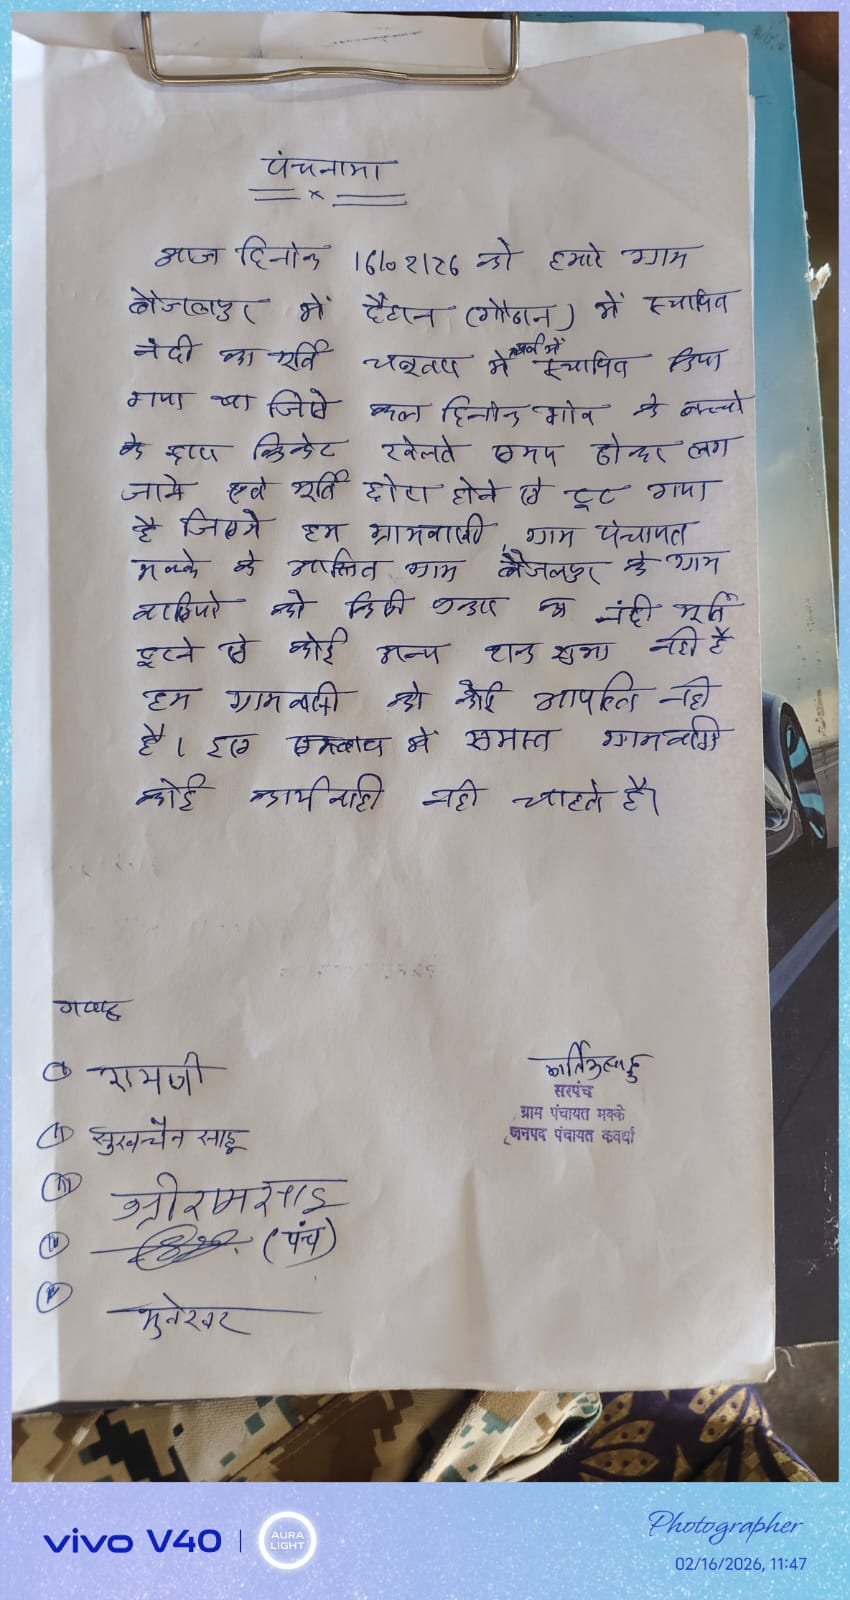 पंचनामा
आज दिनांक 16/02/26 को हमारे ग्राम
बैजलपुर में दैहान (गौठान) में स्थापित
नंदी का मूर्ति चबुतरा में स्थापित किया
गया था जिसे कल दिनांक गांव के बच्चो
के द्वारा क्रिकेट खेलते समय ठोकर लग
जाने एवं मूर्ति छोटा होने से टूट गया
है जिसमे हम ग्रामवासी, ग्राम पंचायत
मक्के के आश्रित ग्राम बैजलपुर के ग्राम
वासियो को किसी प्रकार का नंदी मूर्ति
टूटने से कोई अन्य शक सुभा नही है
हम ग्रामवासी को कोई आपत्ति नही
है। इस सम्बंध में समस्त ग्रामवासी
कोई कार्यवाही नही चाहते है।
गवाह
रामजी
सुखचैन साहू
श्रीराम साहू
(पंच)
मुनेश्वर
सरपंच
ग्राम पंचायत मक्के
जनपद पंचायत कवर्धा
vivo V40 | AURA LIGHT
Photographer
02/16/2026, 11:47